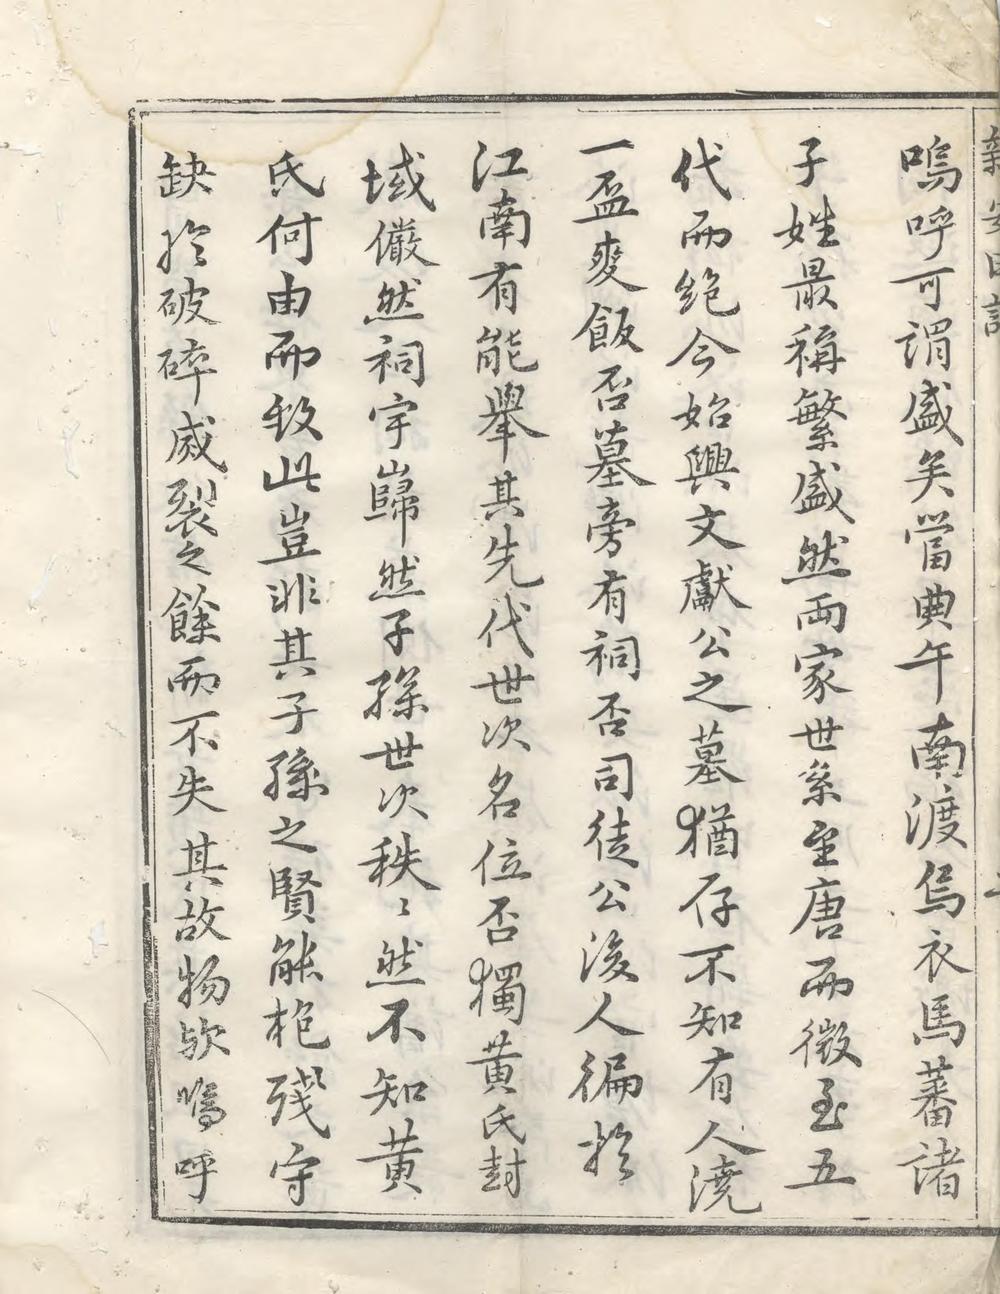 嗚呼可謂盛矣當典午南渡烏衣馬蕃諸
子姓最稱繁盛然兩家世系至唐而微至五
代而絶今始興文獻公之墓猶存不知有人澆
一盃麥飯否墓旁有祠否司徒公後人徧於
江南有能舉其先代世次名位否獨黃氏封
域儼然祠宇巋然子孫世次秩〻然不知黃
氏何由而致此豈非其子孫之賢能抱殘守
缺於破碎烕裂之餘而不失其故物歟嗚呼